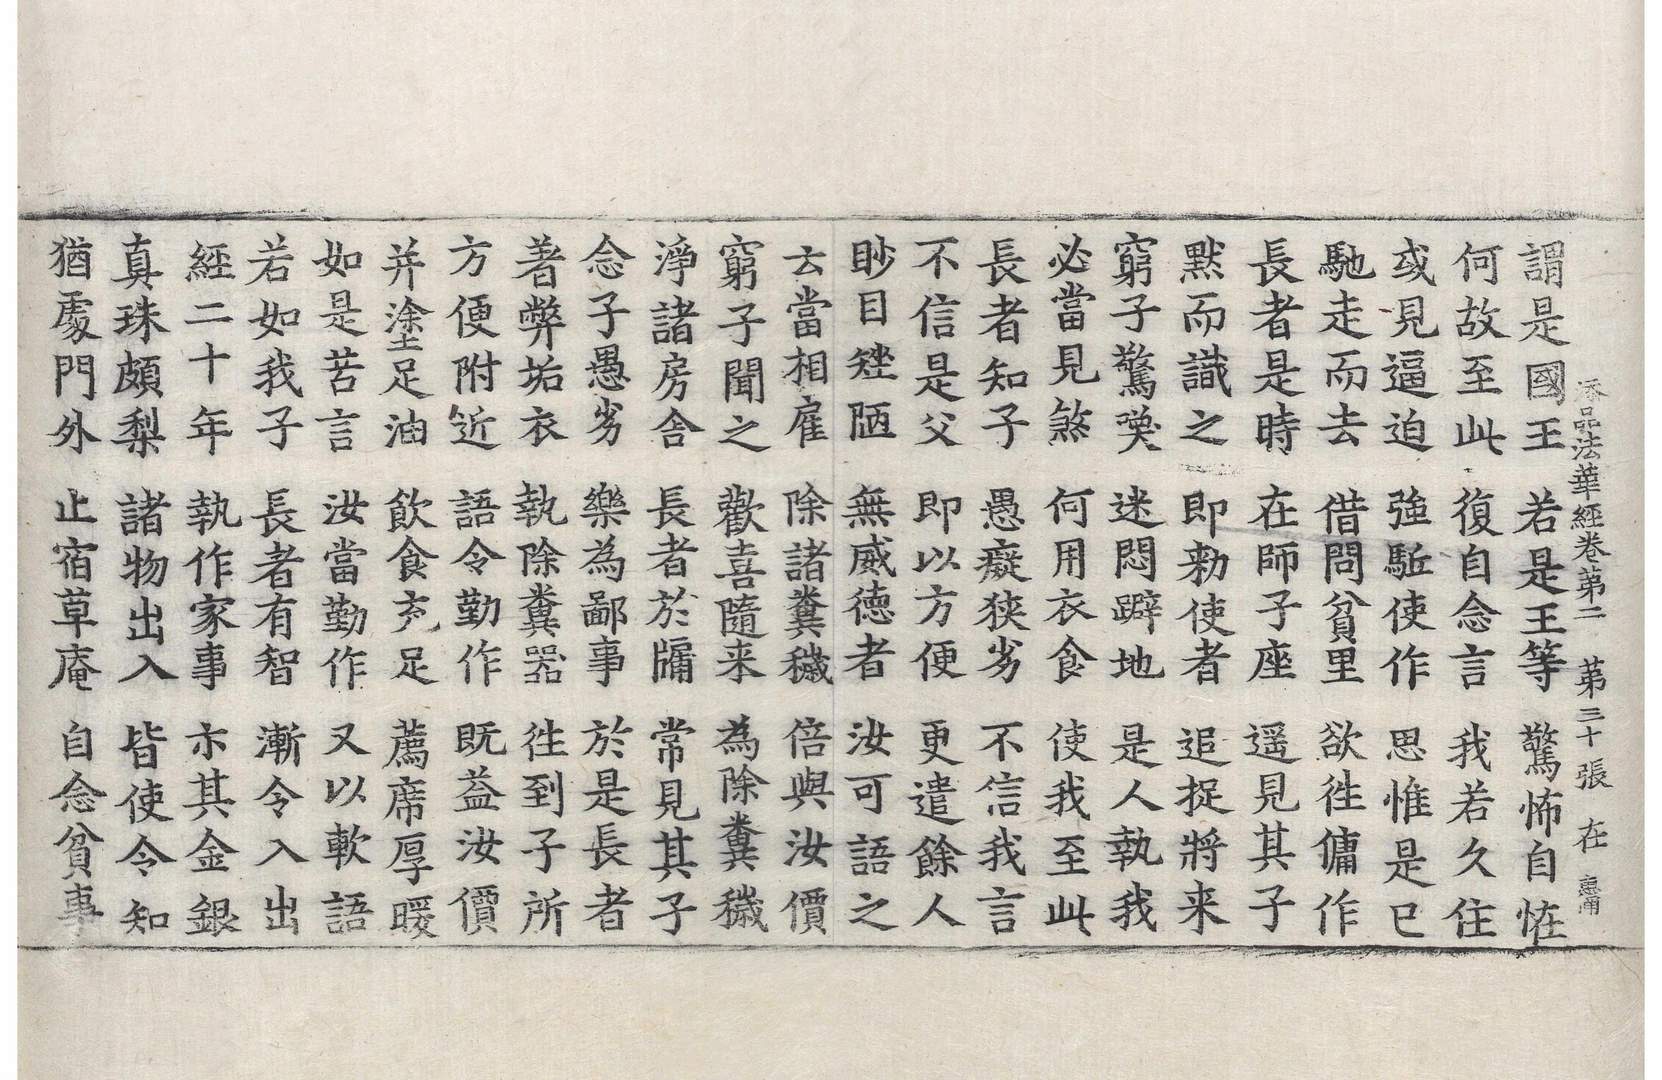 添品法華經卷第二　第三十張　在
謂是國王　若是王等　驚怖自恠
何故至此　復自念言　我若久住
或見逼迫　強駈使作　思惟是已
馳走而去　借問貧里　欲徃傭作
長者是時　在師子座　遥見其子
黙而識之　即勑使者　追捉將来
窮子驚喚　迷悶躃地　是人執我
必當見煞　何用衣食　使我至此
長者知子　愚癡狭劣　不信我言
不信是父　即以方便　更遣餘人
眇目矬陋　無威德者　汝可語之
云當相雇　除諸糞穢　倍與汝價
窮子聞之　歡喜隨来　為除糞穢
淨諸房舎　長者於牖　常見其子
念子愚劣　樂為鄙事　於是長者
著弊垢衣　執除糞器　徃到子所
方便附近　語令勤作　既益汝價
并塗足油　飲食充足　薦席厚暖
如是苦言　汝當勤作　又以軟語
若如我子　長者有智　漸令入出
經二十年　執作家事　示其金銀
真珠頗梨　諸物出入　皆使令知
猶處門外　止宿草庵　自念貧事